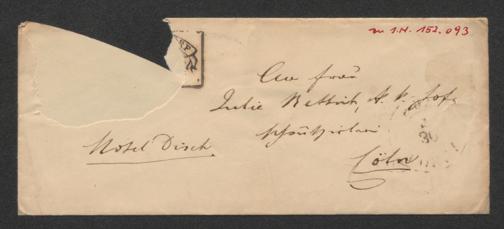 zu I.N. 152.093
An Frau
Julie Rettich, k. k. Hof-
Schauspielerin
Hotel Disch.
Cöln